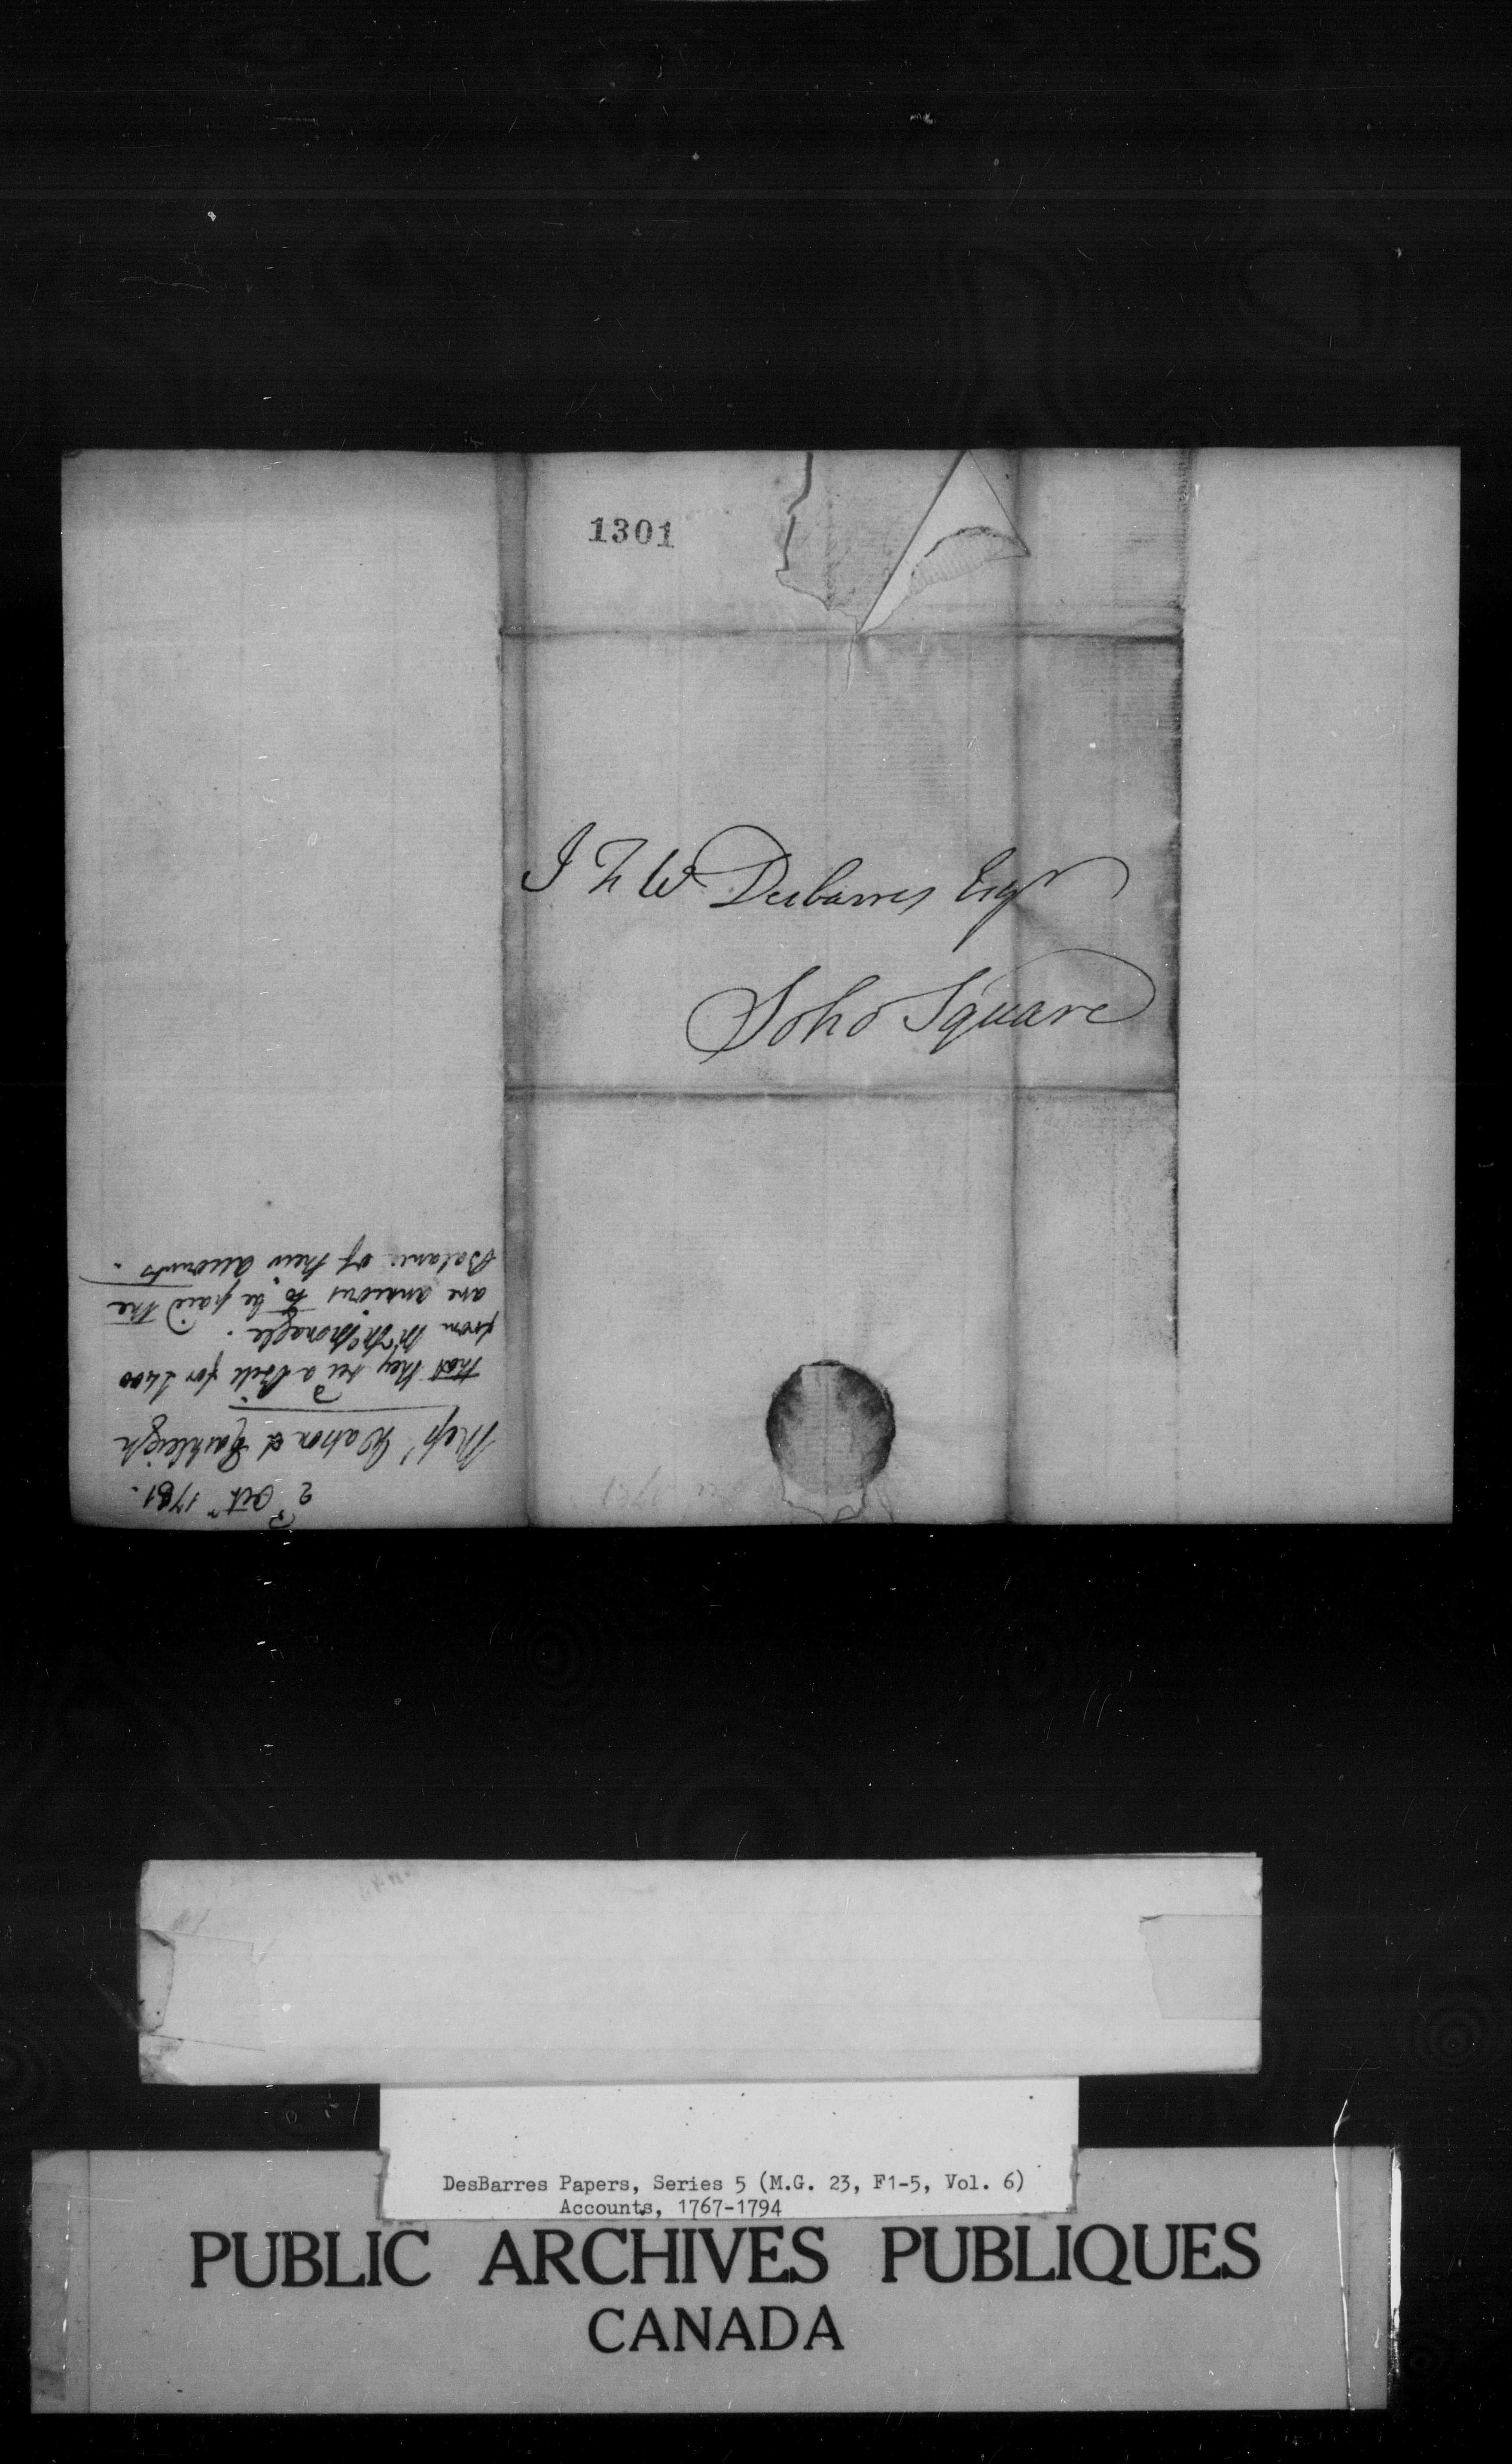 1301
J F W Desbarres Esqr
Soho Square
2d Octr 1781.
Messrs Watson & Rashleigh
that they recd a Bill for £400
from Mr McMonagle.
are anxious to be paid the
Balance of their accounts.
DesBarres Papers, Series 5 (M.G. 23, F1-5, Vol. 6)
Accounts, 1767-1794
PUBLIC ARCHIVES PUBLIQUES
CANADA